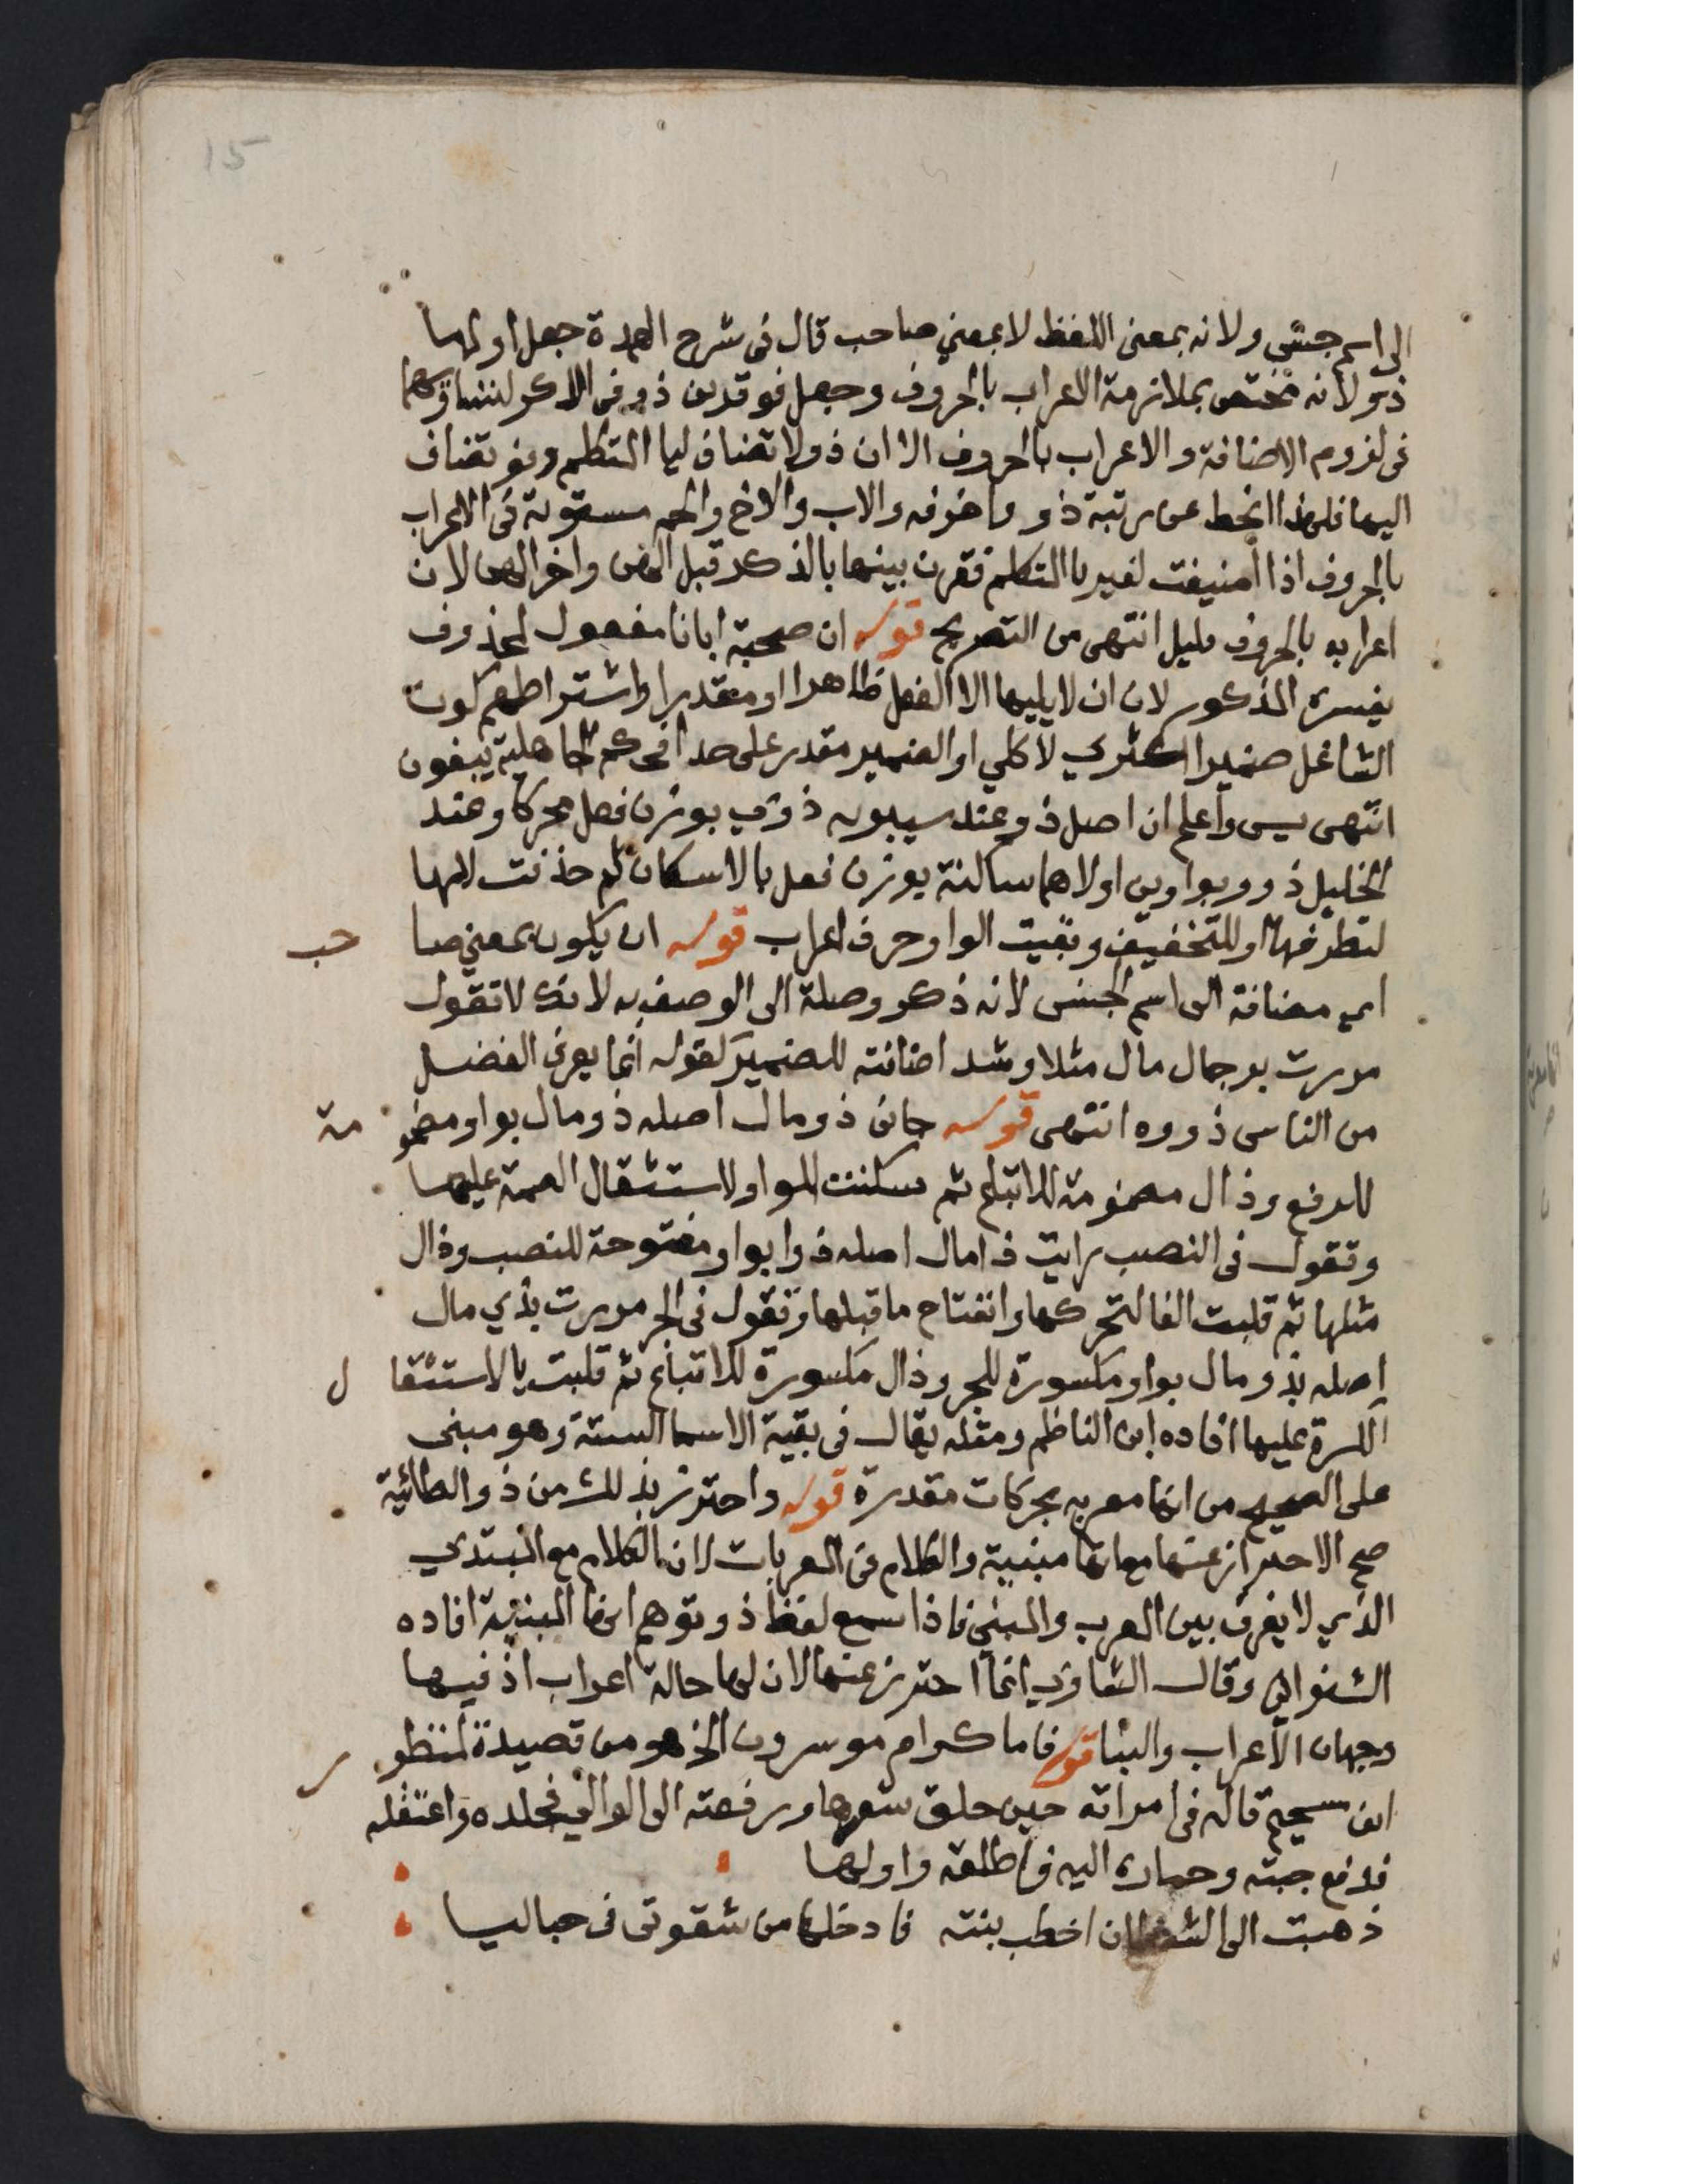 15
الى اسم جنس ولانه بمعنى اللفظ لا بمعنى صاحب قال فى شرح العمدة جعل اولها
ذو لانه مختص بملازمة الاعراب بالحروف وجعل فو قرين ذو فى الذكر لتساويهما
فى لزوم الاضافة والاعراب بالحروف الا ان ذو لا تضاف ليا المتكلم وفو تضاف
اليها فلهذا انحط عن رتبة ذو وما فوقه والاب والاخ والحم مستوية فى الاعراب
بالحروف اذا اضيفت لغير يا المتكلم فقرن بينها بالذكر قبل الهن واخر الهن لان
اعرابه بالحروف قليل انتهى من التصريح قوله ان صحبة ابانا مفعول لمحذوف
يفسره المذكور لان ان لا يليها الا الفعل ظاهرا او مقدرا واشتراطهم كون
الشاغل ضميرا اكثري لا كلي او الضمير مقدر على حد افحكم الجاهلية يبغون
انتهى يس واعلم ان اصل ذو عند سيبويه ذوي بوزن فعل محركا وعند
الخليل ذوو بواوين اولاهما ساكنة بوزن فعل بالاسكان ثم حذفت لامها
لتطرفها او للتخفيف وبقيت الواو حرف اعراب قوله ان يكون بمعنى صا حب
اي مضافة الى اسم الجنس لانه ذكر وصلة الى الوصف به لانك لا تقول
مررت برجال مال مثلا وشذ اضافته للضمير كقوله انما يعرف الفضل
من الناس ذووه انتهى قوله جانى ذو مال اصله ذو مال بواو مضمو مة
للرفع وذال مضمومة للاتباع ثم سكنت الواو لاستثقال الضمة عليها
وتقول فى النصب رايت ذا مال اصله ذوا بواو مفتوحة للنصب وذال
مثلها ثم قلبت الفا لتحركها وانفتاح ما قبلها وتقول فى الجر مررت بذي مال
اصله بذو مال بواو مكسورة للجر وذال مكسورة للاتباع ثم قلبت يا لاستثقا ل
الكسرة عليها افاده ابن الناظم ومثله يقال فى بقية الاسما الستة وهو مبنى
على الصحيح من انها معربه بحركات مقدرة قوله واحترز بذلك من ذو الطائية
صح الاحتراز عنها مع انها مبنية والكلام فى المعربات لان الكلام مع المبتدي
الذي لا يفرق بين المعرب والمبنى فاذا سمع لفظ ذو توهم انها المبنية افاده
الشنوانى وقال الشاوي انما احترز عنها لان لها حالة اعراب اذ فيها
وجهان الاعراب والبنا قوله فاما كرام موسرون الخ هو من قصيدة لمنظو ر
ابن سحيم قاله فى امراته حين حلق شعرها ورفعته الى الوالى فجلده واعتقله
فدفع جبته وحماره اليه فاطلقه واولها
ذهبت الى الشيطان اخطب بنته فادخلها من شقوتى فى حباليا